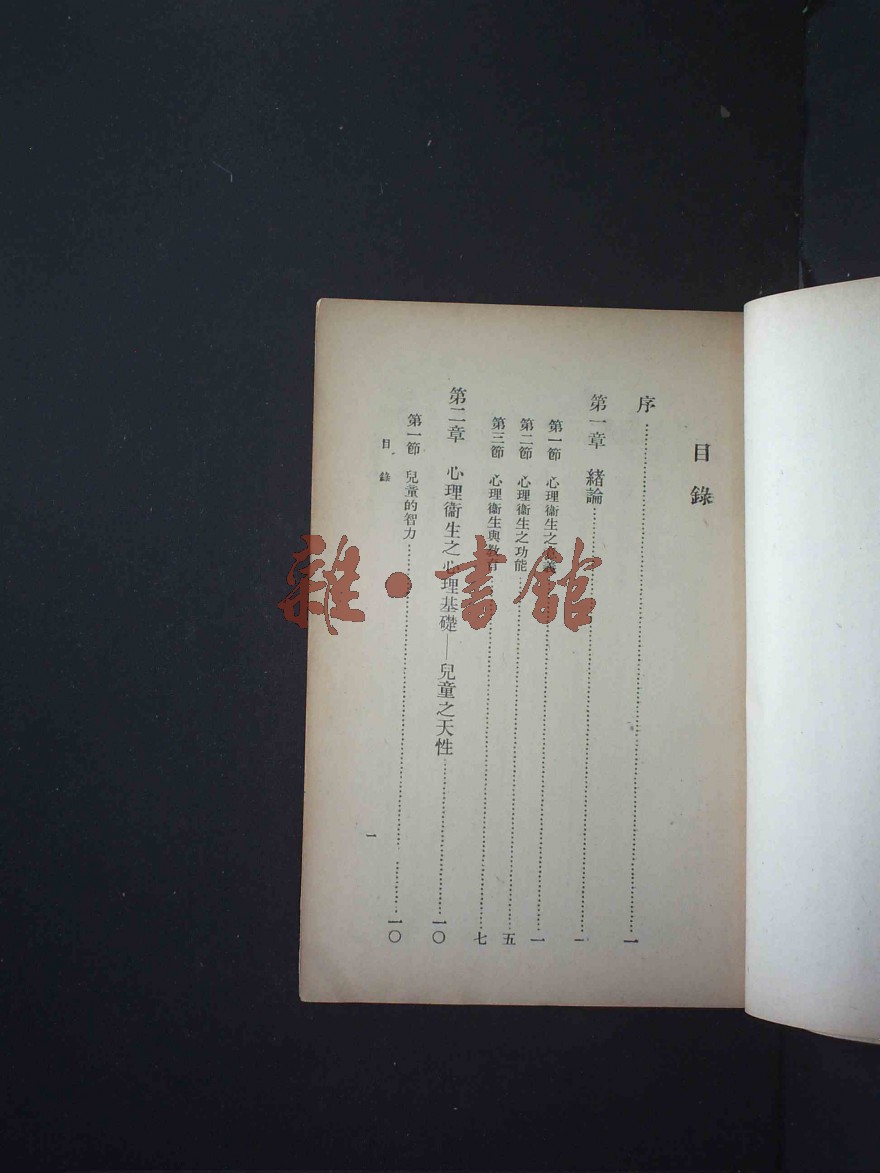 目錄
序……一
第一章 緒論……一
第一節 心理衞生之意義……一
第二節 心理衞生之功能……五
第三節 心理衞生與教育……七
第二章 心理衞生之心理基礎——兒童之天性……一〇
第一節 兒童的智力……一〇
目錄
一
雜·書館